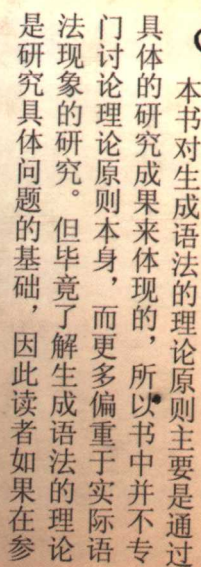 本书对生成语法的理论原则主要是通过
具体的研究成果来体现的，所以书中并不专
门讨论理论原则本身，而更多偏重于实际语
法现象的研究。但毕竟了解生成语法的理论
是研究具体问题的基础，因此读者如果在参